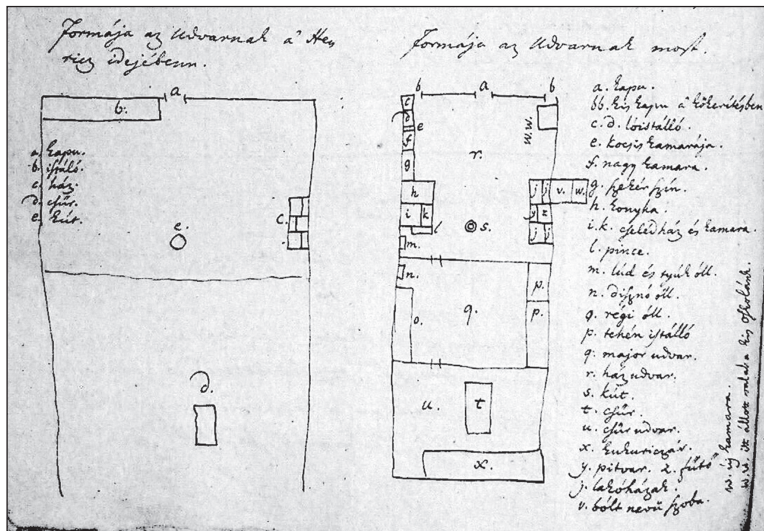 Formája az Udvarnak â Hen
ricz idejébenn.
a
b.
a. kapu.
b. istáló.
c. ház
d. csűr.
e. kút.
c.
e.
d.
Formája az Udvarnak most.
b a b
c
d
e
f
g
h
i k
l
m.
n.
o.
r.
w.w.
j j v. w.
y z
j j
s.
p.
p.
q.
u. t
x.
a. kapu.
bb. kis kapu â kőkerítésben
c. d. lóistálló.
e. kocsis kamarája.
f. nagy kamara.
g. szekér szín.
h. konyha.
i. k. cselédház és kamara.
l. pince.
m. lúd és tyúk óll.
n. disznó óll.
q. régi óll.
p. tehén istálló
q. major udvar.
r. ház udvar.
s. kút.
t. csűr.
u. csűr udvar.
x. kukuriczás.
y. pitvar. z. fűtő
j. lakóházak.
v. bólt nevű szoba.
w. új kamara.
w. w. itt állott valaha kis